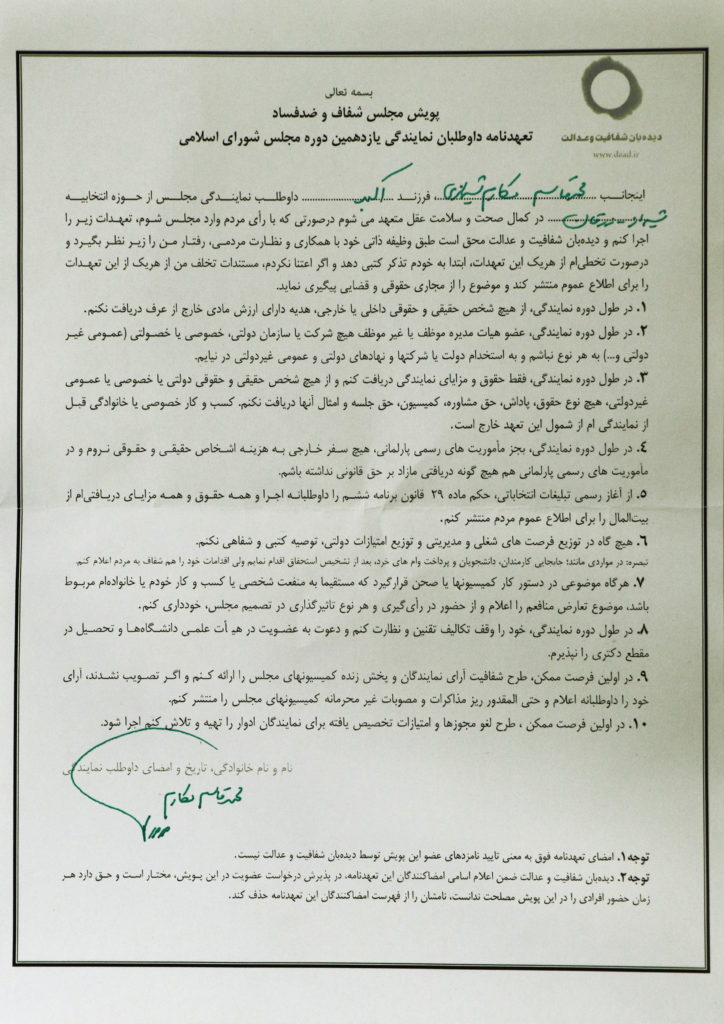 بسمه تعالی
پویش مجلس شفاف و ضدفساد
تعهدنامه داوطلبان نمایندگی یازدهمین دوره مجلس شورای اسلامی
دیده‌بان شفافیت و عدالت
www.dead.ir
اینجانب محمدقاسم مکارم شیرازی فرزند اکبر داوطلب نمایندگی مجلس از حوزه انتخابیه
شیراز در کمال صحت و سلامت عقل متعهد می شوم درصورتی که با رأی مردم وارد مجلس شوم، تعهدات زیر را
اجرا کنم و دیده‌بان شفافیت و عدالت محق است طبق وظیفه ذاتی خود با همکاری و نظارت مردمی، رفتار من را زیر نظر بگیرد و
درصورت تخطی‌ام از هریک این تعهدات، ابتدا به خودم تذکر کتبی دهد و اگر اعتنا نکردم، مستندات تخلف من از هریک از این تعهدات
را برای اطلاع عموم منتشر کند و موضوع را از مجاری حقوقی و قضایی پیگیری نماید.
۱. در طول دوره نمایندگی، از هیچ شخص حقیقی و حقوقی داخلی یا خارجی، هدیه دارای ارزش مادی خارج از عرف دریافت نکنم.
۲. در طول دوره نمایندگی، عضو هیات مدیره موظف یا غیر موظف هیچ شرکت یا سازمان دولتی، خصوصی یا خصولتی (عمومی غیر
دولتی و...) به هر نوع نباشم و به استخدام دولت یا شرکتها و نهادهای دولتی و عمومی غیردولتی در نیایم.
۳. در طول دوره نمایندگی، فقط حقوق و مزایای نمایندگی دریافت کنم و از هیچ شخص حقیقی و حقوقی دولتی یا خصوصی یا عمومی
غیردولتی، هیچ نوع حقوق، پاداش، حق مشاوره، کمیسیون، حق جلسه و امثال آنها دریافت نکنم. کسب و کار خصوصی یا خانوادگی قبل
از نمایندگی ام از شمول این تعهد خارج است.
۴. در طول دوره نمایندگی، بجز مأموریت های رسمی پارلمانی، هیچ سفر خارجی به هزینه اشخاص حقیقی و حقوقی نروم و در
مأموریت های رسمی پارلمانی هم هیچ گونه دریافتی مازاد بر حق قانونی نداشته باشم.
۵. از آغاز رسمی تبلیغات انتخاباتی، حکم ماده ۲۹ قانون برنامه ششم را داوطلبانه اجرا و همه حقوق و همه مزایای دریافتی‌ام از
بیت‌المال را برای اطلاع عموم مردم منتشر کنم.
۶. هیچ گاه در توزیع فرصت های شغلی و مدیریتی و توزیع امتیازات دولتی، توصیه کتبی و شفاهی نکنم.
تبصره: در مواردی مانند؛ جابجایی کارمندان، دانشجویان و پرداخت وام های خرد، بعد از تشخیص استحقاق اقدام نمایم ولی اقدامات خود را هم شفاف به مردم اعلام کنم.
۷. هرگاه موضوعی در دستور کار کمیسیونها یا صحن قرارگیرد که مستقیما به منفعت شخصی یا کسب و کار خودم یا خانواده‌ام مربوط
باشد، موضوع تعارض منافعم را اعلام و از حضور در رأی‌گیری و هر نوع تاثیرگذاری در تصمیم مجلس، خودداری کنم.
۸. در طول دوره نمایندگی، خود را وقف تکالیف تقنین و نظارت کنم و دعوت به عضویت در هیأت علمی دانشگاه‌ها و تحصیل در
مقطع دکتری را نپذیرم.
۹. در اولین فرصت ممکن، طرح شفافیت آرای نمایندگان و پخش زنده کمیسیونهای مجلس را ارائه کنم و اگر تصویب نشدند، آرای
خود را داوطلبانه اعلام و حتی المقدور ریز مذاکرات و مصوبات غیر محرمانه کمیسیونهای مجلس را منتشر کنم.
۱۰. در اولین فرصت ممکن ، طرح لغو مجوزها و امتیازات تخصیص یافته برای نمایندگان ادوار را تهیه و تلاش کنم اجرا شود.
نام و نام خانوادگی، تاریخ و امضای داوطلب نمایندگی
محمدقاسم مکارم
توجه۱. امضای تعهدنامه فوق به معنی تایید نامزدهای عضو این پویش توسط دیده‌بان شفافیت و عدالت نیست.
توجه۲. دیده‌بان شفافیت و عدالت ضمن اعلام اسامی امضاکنندگان این تعهدنامه، در پذیرش درخواست عضویت در این پویش، مختار است و حق دارد هر
زمان حضور افرادی را در این پویش مصلحت ندانست، نامشان را از فهرست امضاکنندگان این تعهدنامه حذف کند.